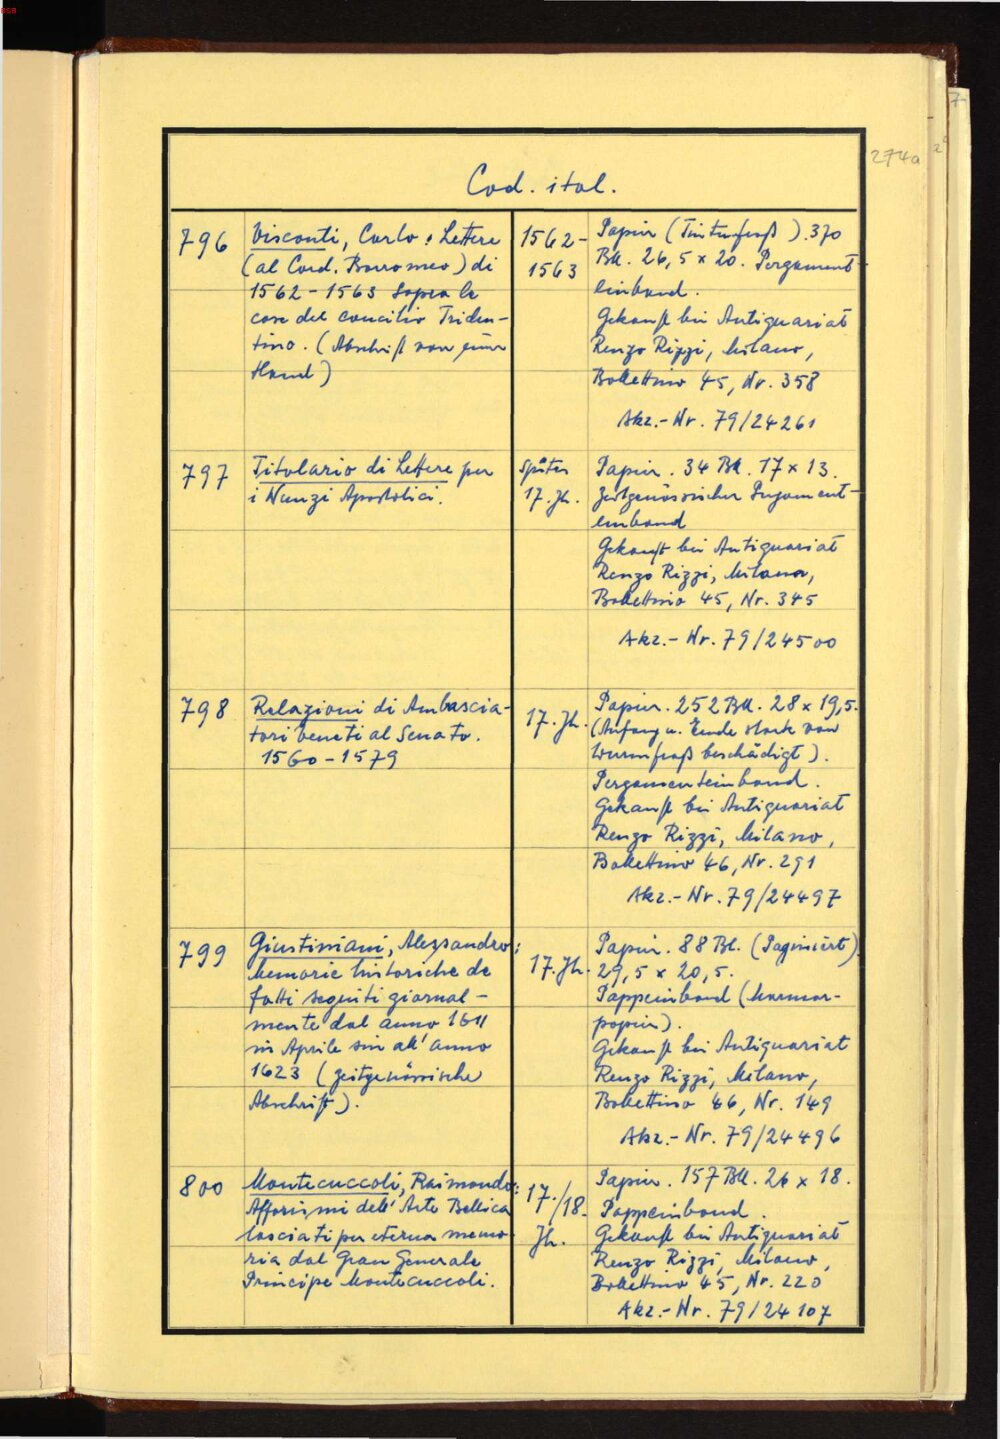 274a
Cod. ital.
796
Visconti, Carlo: Lettere
(al Card. Borromeo) di
1562-1563 sopra le
cose del concilio Triden-
tino. (Abschrift von einer
Hand)
1562-
1563
Papier (Tintenfraß). 370
Bll. 26,5 x 20. Pergament-
einband.
Gekauft bei Antiquariat
Renzo Rizzi, Milano,
Bollettino 45, Nr. 358
Akz.-Nr. 79/24261
797
Titolario di Lettere per
i Nunzi Apostolici.
später
17. Jh.
Papier. 34 Bll. 17 x 13.
Zeitgenössischer Pergament-
einband
Gekauft bei Antiquariat
Renzo Rizzi, Milano,
Bollettino 45, Nr. 345
Akz.-Nr. 79/24500
798
Relazioni di Ambascia-
tori veneti al Senato.
1560-1579
17. Jh.
Papier. 252 Bll. 28 x 19,5.
(Anfang u. Ende stark von
Wurmfraß beschädigt).
Pergamenteinband.
Gekauft bei Antiquariat
Renzo Rizzi, Milano,
Bollettino 46, Nr. 291
Akz.-Nr. 79/24497
799
Giustiniani, Alessandro:
Memorie historiche de
fatti seguiti giornal-
mente dal anno 1611
in Aprile sin all' anno
1623 (zeitgenössische
Abschrift).
17. Jh.
Papier. 88 Bl. (Paginiert)
29,5 x 20,5.
Pappeinband (Marmor-
papier).
Gekauft bei Antiquariat
Renzo Rizzi, Milano,
Bollettino 46, Nr. 149
Akz.-Nr. 79/24496
800
Montecuccoli, Raimondo:
Afforismi dell' Arte Bellica
lasciati per eterna memo-
ria dal Gran Generale
Principe Montecuccoli.
17./18.
Jh.
Papier. 157 Bll. 26 x 18.
Pappeinband.
Gekauft bei Antiquariat
Renzo Rizzi, Milano,
Bollettino 45, Nr. 220
Akz.-Nr. 79/24107